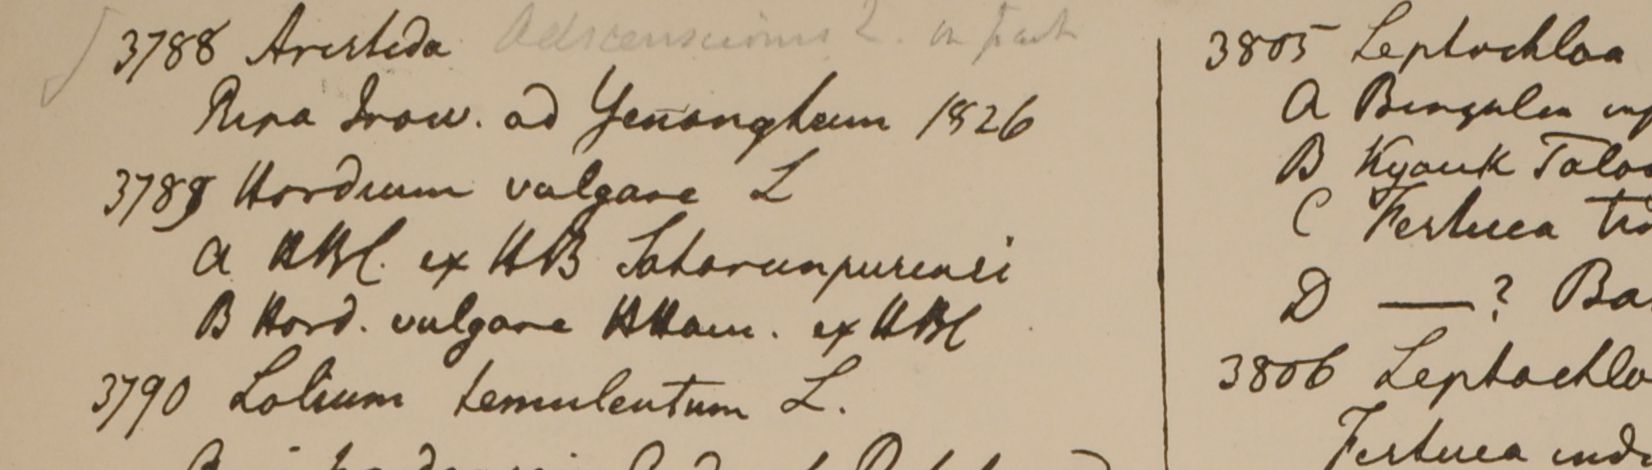 3788 Aristida Adscensionis L. in part
Ripa Iraw. ad Yenangheum 1826
3789 Hordeum vulgare L
A HBC. ex HB Saharunpurensi
B Hord. vulgare HHam. ex HBC
3790 Lolium temulentum L.
3805 Leptochloa
A
B Kyouk
C Festuca
D — ? Ba
3806 Leptochlo
Festuca ind